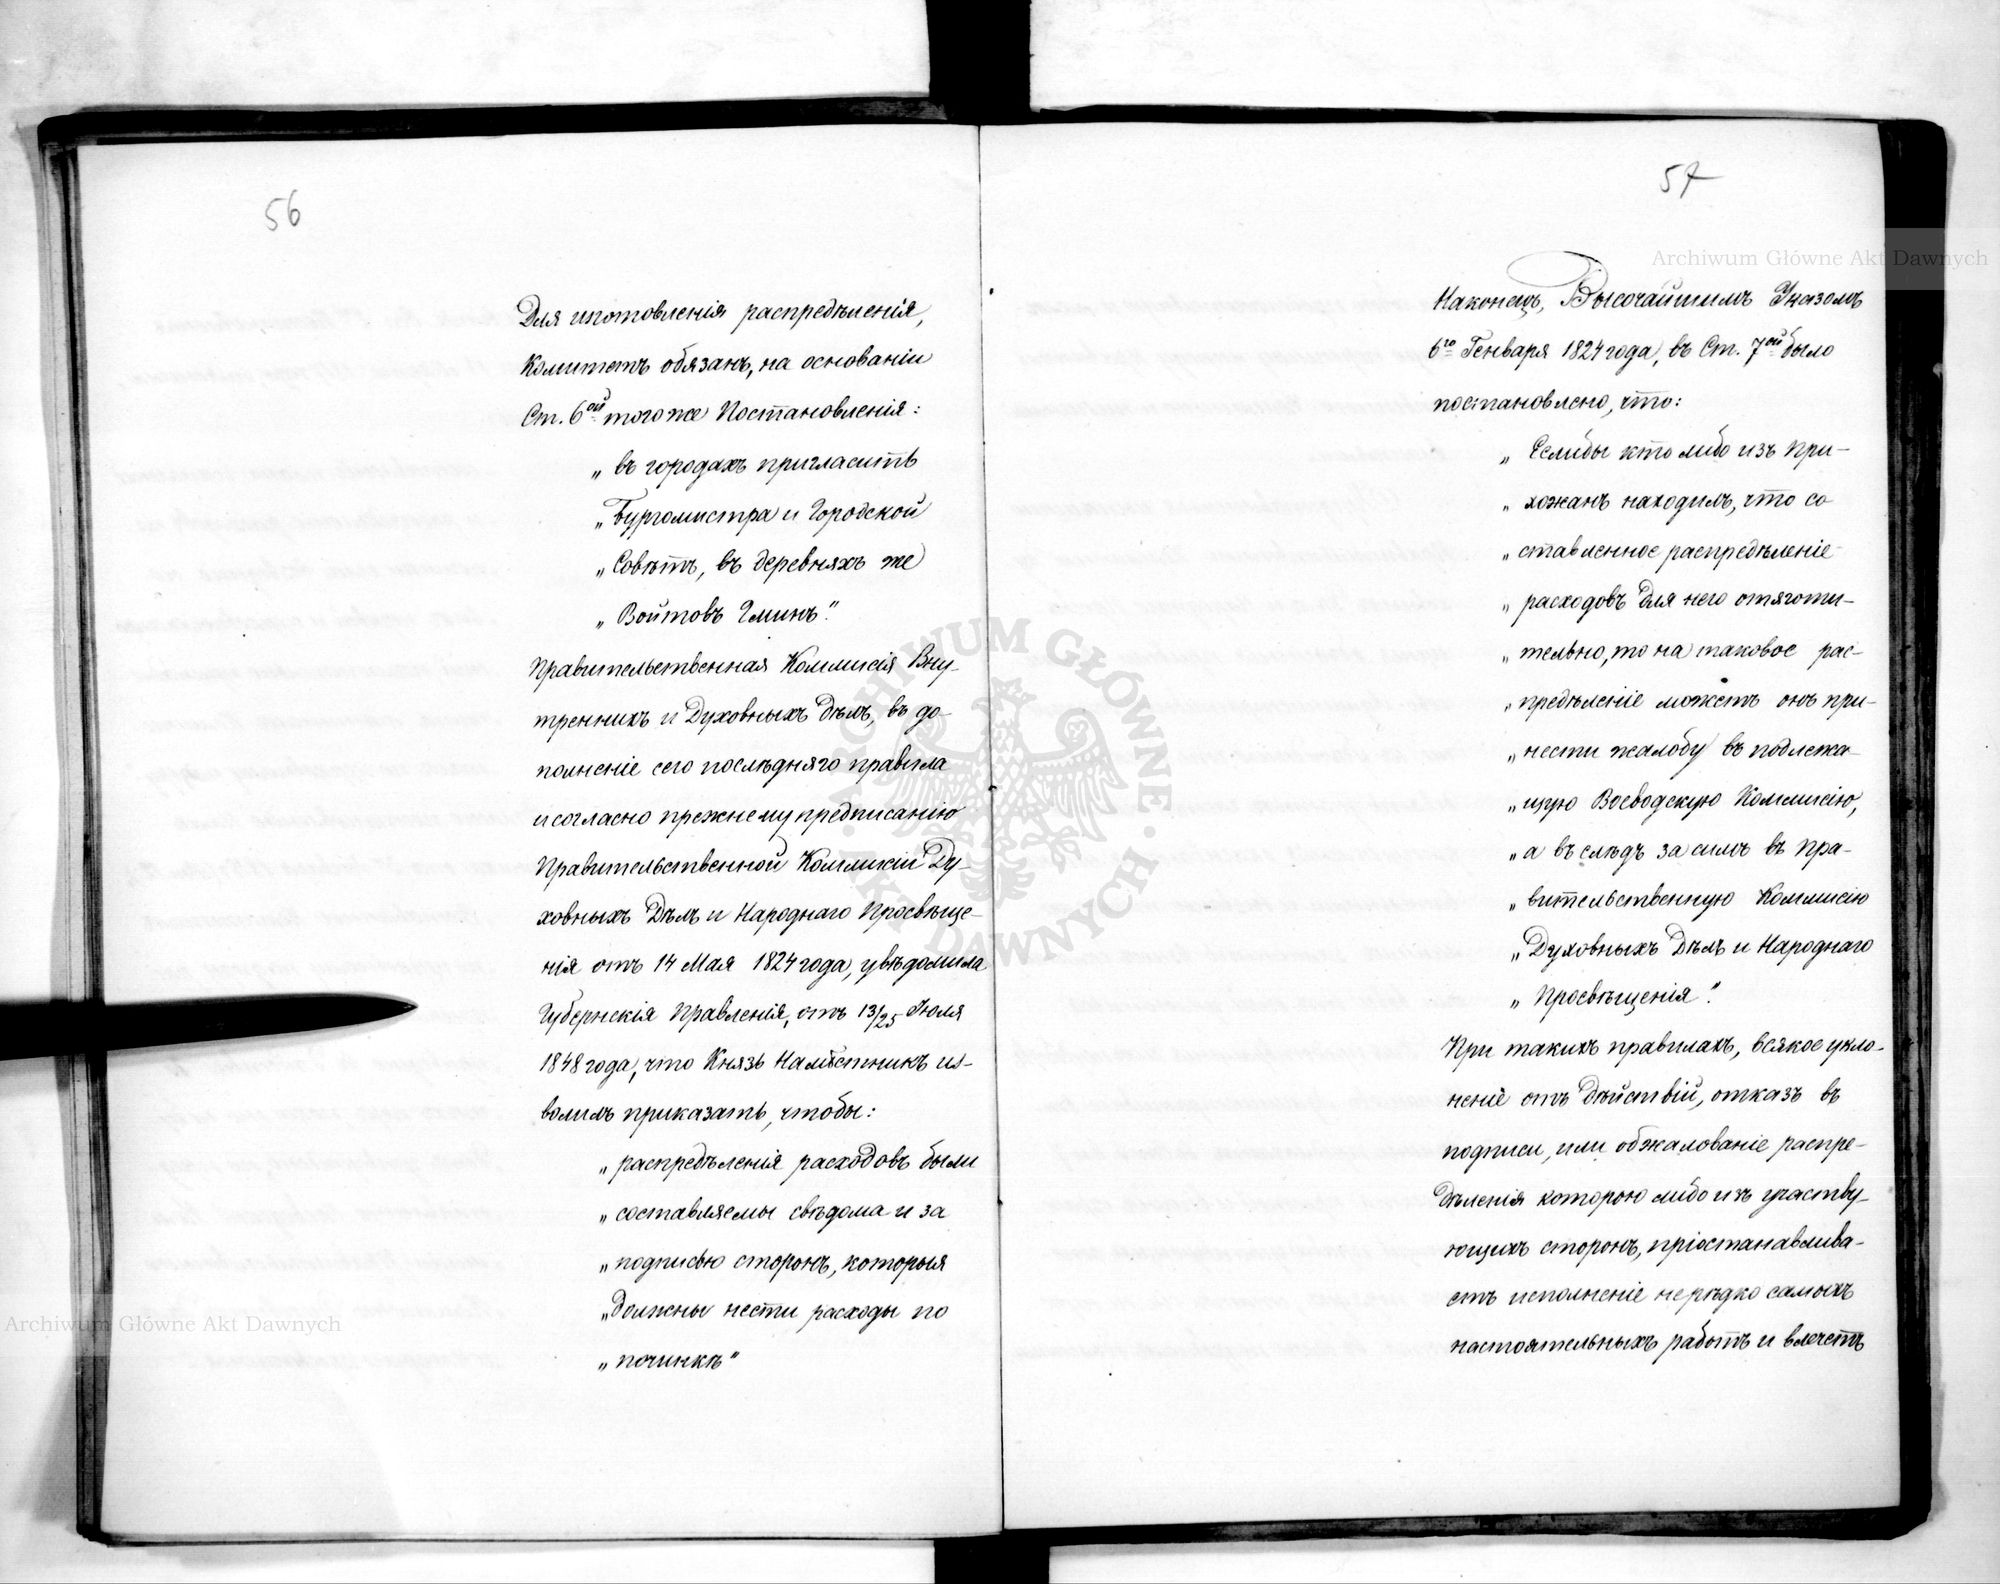 56
Для изготовленія распредѣленія,
Комитетъ обязанъ, на основаніи
Ст. 6ой того же Постановленія:
„ въ городахъ пригласить
„ Бургомистра и Городской
„ Совѣтъ, въ деревняхъ же
„ Войтовъ Гминъ."
Правительственная Коммисія Вну-
тренних и Духовныхъ Дѣлъ, въ до-
полненіе сего послѣдняго правила
и согласно прежнему предписанію
Правительственной Коммисіи Ду-
ховныхъ Дѣлъ и Народнаго Просвѣще-
нія отъ 14 Мая 1824 года, увѣдомила
Губернскія Правленія, отъ 13/25 Іюля
1848 года, что Князь Намѣстникъ из-
волилъ приказать, чтобы:
„ распредѣленія расходовъ были
„ составляемы свѣдома и за
„ подписью сторонъ, которыя
„ должны нести расходы по
„ починкѣ"
57
Наконецъ, Высочайшимъ Указомъ
6го Генваря 1824 года, въ Ст. 7ой было
постановлено, что:
„ Еслибы кто либо изъ при-
„ хожанъ находилъ, что со
„ ставленное распредѣленіе
„ расходовъ для него отяготи-
„ тельно, то на таковое рас-
„ предѣленіе можетъ онъ при-
„ нести жалобу въ подлежа-
„ щую Воеводскую Коммисію,
„ а въ слѣдъ за симъ въ Пра-
„ вительственную Коммисію
„ Духовныхъ Дѣлъ и Народнаго
„ Просвѣщенія."
При такихъ правилахъ, всякое укло-
неніе отъ дѣйствій, отказъ въ
подписи, или обжалованіе распре-
дѣленія которою либо изъ участву-
ющихъ сторонъ, пріостанавлива-
етъ исполненіе нерѣдко самыхъ
настоятельныхъ работъ и влечетъ
Archiwum Główne Akt Dawnych
Archiwum Główne Akt Dawnych
ARCHIWUM GŁÓWNE · AKT DAWNYCH ·